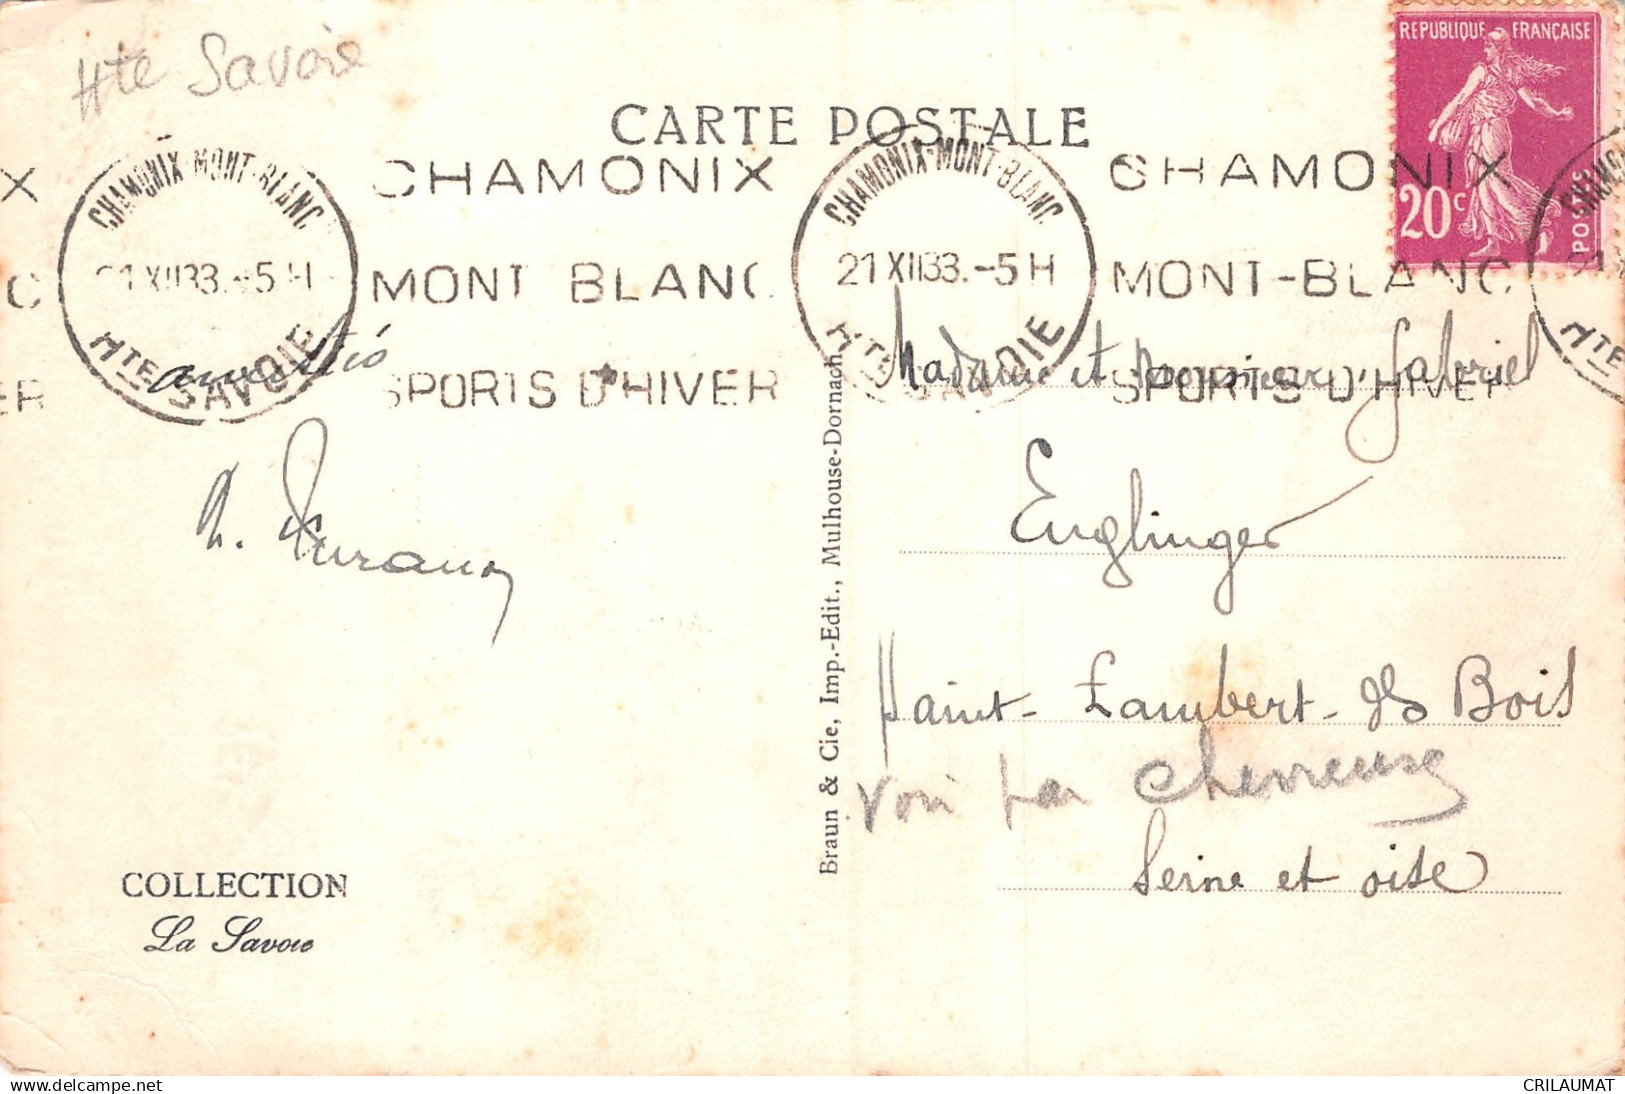 Hte Savoie
CARTE POSTALE
REPUBLIQUE FRANÇAISE
20c
POSTES
X
C
ER
CHAMONIX-MONT-BLANC
21 XII 33.-5 H
HTE SAVOIE
CHAMONIX
MONT BLANC
SPORTS D'HIVER
CHAMONIX-MONT-BLANC
21 XII 33.-5 H
HTE SAVOIE
CHAMONIX
MONT-BLANC
SPORTS D'HIVER
CHAMON
HTE
amitiés
Madame et Monsieur Gabriel
Englinger
Saint-Lambert-des Bois
Voir par Chevreuse
Seine et oise
Braun & Cie, Imp.-Edit., Mulhouse-Dornach
COLLECTION
La Savoie
delcampe.net
CRILAUMAT